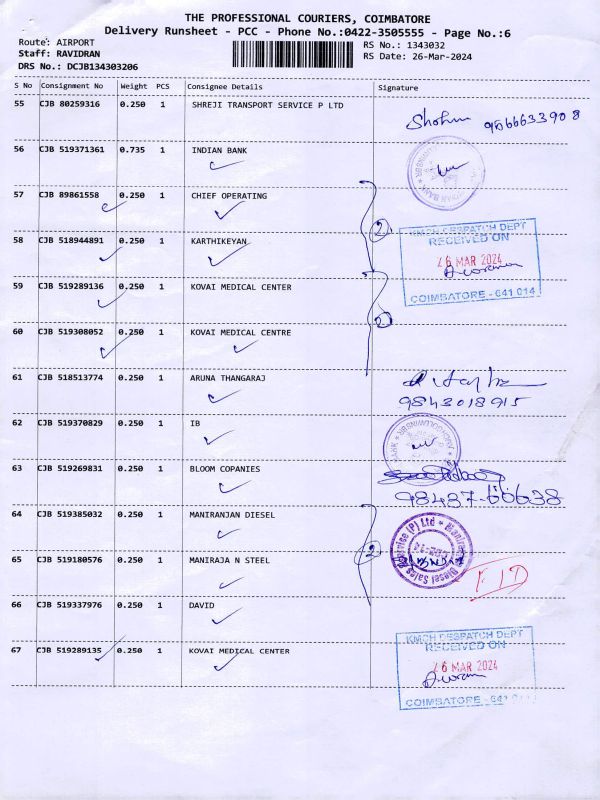 THE PROFESSIONAL COURIERS, COIMBATORE
Delivery Runsheet - PCC - Phone No.:0422-3505555 - Page No.:6
Route: AIRPORT
RS No.: 1343032
Staff: RAVIDRAN
RS Date: 26-Mar-2024
DRS No.: DCJB134303206
S No Consignment No Weight PCS Consignee Details Signature
55 CJB 80259316 0.250 1 SHREJI TRANSPORT SERVICE P LTD
9566633908
56 CJB 519371361 0.735 1 INDIAN BANK
57 CJB 89861558 0.250 1 CHIEF OPERATING
2
KMCH DESPATCH DEPT
RECEIVED ON
26 MAR 2024
COIMBATORE - 641 014
58 CJB 518944891 0.250 1 KARTHIKEYAN
59 CJB 519289136 0.250 1 KOVAI MEDICAL CENTER
60 CJB 519308052 0.250 1 KOVAI MEDICAL CENTRE
61 CJB 518513774 0.250 1 ARUNA THANGARAJ
9843018915
62 CJB 519370829 0.250 1 IB
63 CJB 519269831 0.250 1 BLOOM COPANIES
98437-66638
64 CJB 519385032 0.250 1 MANIRANJAN DIESEL
2
65 CJB 519180576 0.250 1 MANIRAJA N STEEL
66 CJB 519337976 0.250 1 DAVID
67 CJB 519289135 0.250 1 KOVAI MEDICAL CENTER
KMCH DESPATCH DEPT
RECEIVED ON
26 MAR 2024
COIMBATORE - 641 014